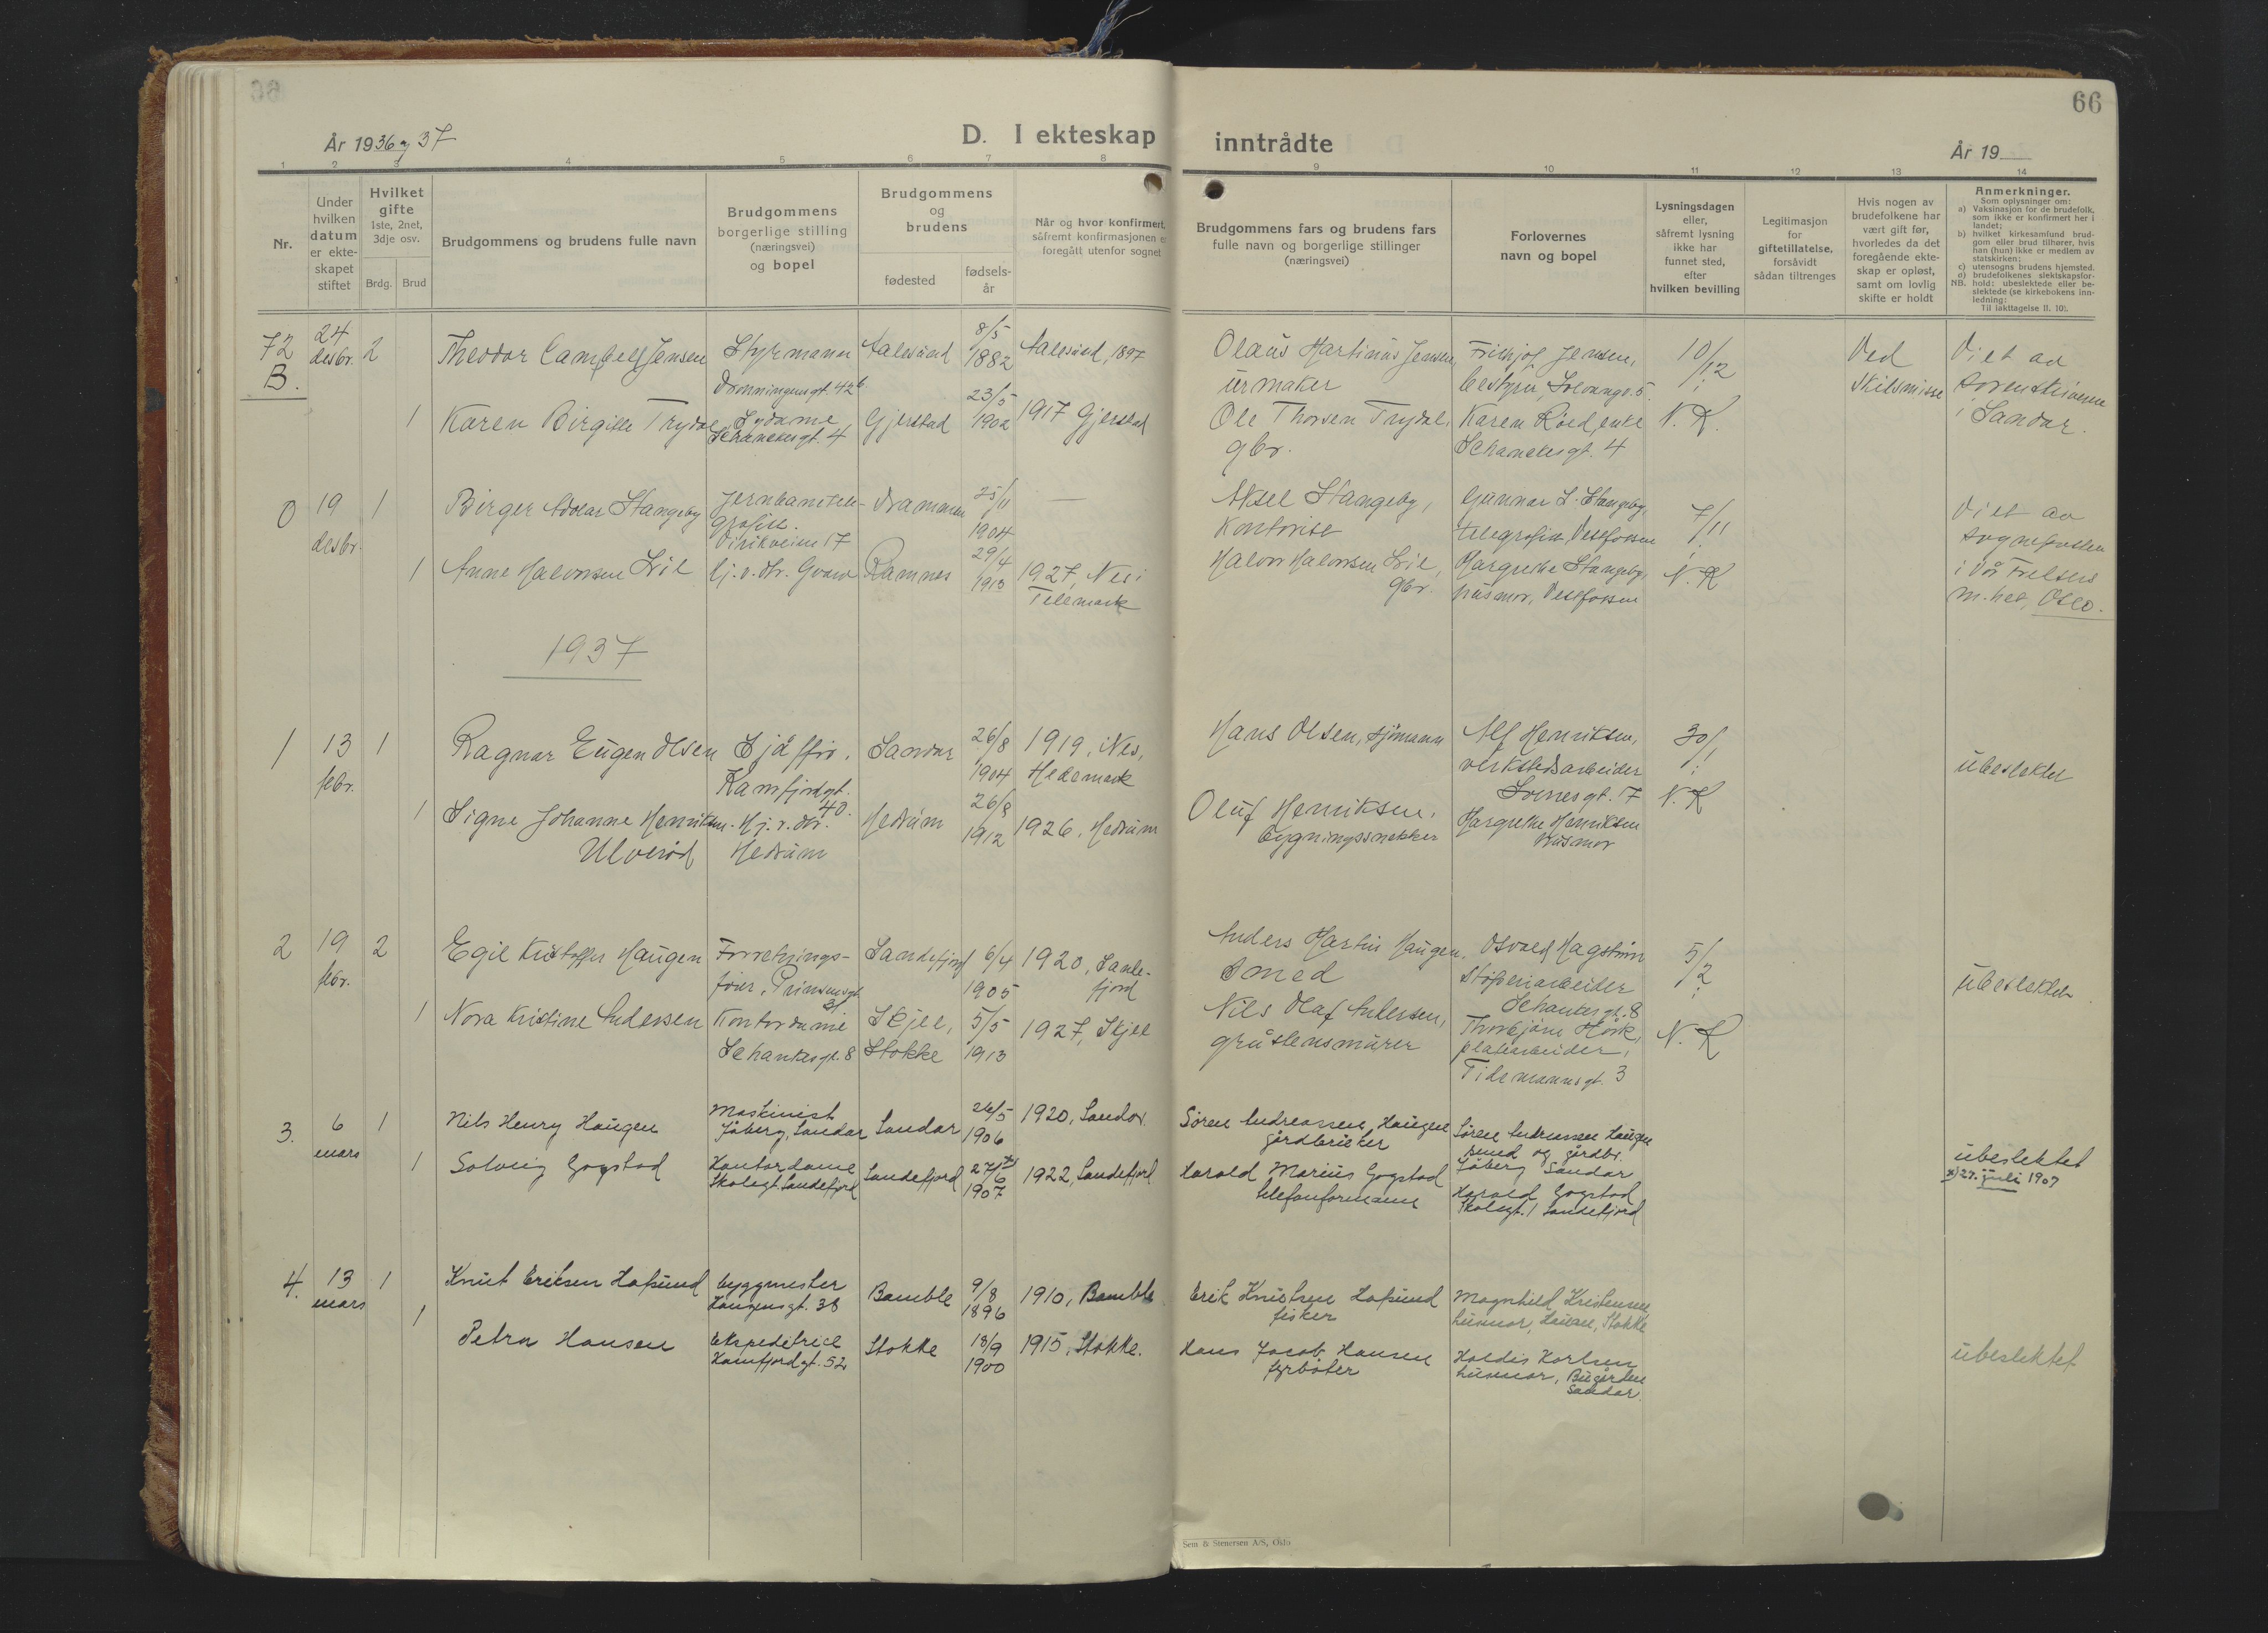 66
År 1936 og 37
D. I ekteskap inntrådte
År 19
1 2 3 4 5 6 7 8 9 10 11 12 13 14
Nr.
Under
hvilken
datum
er ekte-
skapet
stiftet
Hvilket
gifte
1ste, 2net,
3dje osv.
Brdg. Brud
Brudgommens og brudens fulle navn
Brudgommens
borgerlige stilling
(næringsvei)
og bopel
Brudgommens
og
brudens
fødested
fødsels-
år
Når og hvor konfirmert,
såfremt konfirmasjonen er
foregått utenfor sognet
Brudgommens fars og brudens fars
fulle navn og borgerlige stillinger
(næringsvei)
Forlovernes
navn og bopel
Lysningsdagen
eller,
såfremt lysning
ikke har
funnet sted,
efter
hvilken bevilling
Legitimasjon
for
giftetillatelse,
forsåvidt
sådan tiltrenges
Hvis nogen av
brudefolkene har
vært gift før,
hvorledes da det
foregående ekte-
skap er opløst,
samt om lovlig
skifte er holdt
Anmerkninger.
Som oplysninger om:
a) Vaksinasjon for de brudefolk,
som ikke er konfirmert her i
landet;
b) hvilket kirkesamfund brud-
gom eller brud tilhører, hvis
han (hun) ikke er medlem av
statskirken;
c) utensogns brudens hjemsted.
d) brudefolkenes slektskapsfor-
NB. hold: ubeslektede eller be-
slektede (se kirkebokens inn-
ledning:
Til iakttagelse II. 10).
72
B.
24
desbr.
2
Theodor Campbell Jensen
Styrmann
Dronningensgt. 42 b
Aalesund
8/5
1882
Aalesund, 1897
Olaus Martinus Jensen,
urmaker
Frithjof Jensen,
bestyrer,
10/12
Ved
skilsmisse
Viet av
sorenskriveren
i Sandar.
1
Karen Birgitte Trydal
Sydame
Schanckesgt. 4
Gjerstad
23/5
1902
1917 Gjerstad
Ole Thorsen Trydal,
gbr.
Karen Röed, enke
Schanckesgt. 4
N. K.
0
19
desbr.
1
Birger Adolar Stangeby
Jernbanetele-
grafist.
Dirikveien 17
Drammen
25/11
1904
—
Aksel Stangeby,
Kontorist
Gunnar S. Stangeby,
telegrafist, Vestfossen
7/11
Viet av
sognepresten
i Vår Frelsers
m.het, Oslo.
1
Anne Halvorsen Lie
hj. v. dtr.
Ramnes
29/4
1913
1927, Nes i
Telemark
Halvor Halvorsen Lie,
gbr.
Margrethe Stangeby,
husmor, Vestfossen
N. K
1937
1
13
febr.
1
Ragnar Eugen Olsen
Sjåffør.
Kamfjordgt.
40.
Sandar
26/8
1904
1919, Nes,
Hedemark
Hans Olsen, sjömann
Alf Henriksen,
verkstedsarbeider
gt. 7
30/1
ubeslektet
1
Signe Johanne Henriksen
Ulveröd
Hj. v. dtr.
Hedrum
Hedrum
26/8
1912
1926, Hedrum
Oluf Henriksen,
bygningssnekker
Margrethe Henriksen
Husmor
N. K
2
19
febr.
2
Egil Kristoffer Haugen
Forretnings-
fører, Prinsensgt.
Sandefjord
6/4
1905
1920, Sande-
fjord
Anders Martin Haugen,
Smed
Osvald Hagström
støperiarbeider
Schanckesgt. 8
5/2
ubeslektet
1
Nora Kristine Andersen
Kontordame
Schanckesgt. 8
Skjee,
Stokke
5/5
1913
1927, Skjee
Nils Olaf Andersen,
gråstensmurer
Thorbjörn Hörk,
platearbeider,
Tidemannsgt. 3
N. K
3.
6
mars
1
Nils Henry Haugen
Maskinist
Jåberg, Sandar
Sandar
26/5
1906
1920, Sandar.
Sören Andreassen Haugen
gårdbruker
Sören Andreassen Haugen
smed og gårdbr.
Jåberg Sandar
ubeslektet
x) 27. juli 1907
1
Solveig Gogstad
Kontordame
Skolegt. Sandefjord
Sandefjord
27/6 x)
1907
1922, Sandefjord
Harald Marius Gogstad
telefonformann
Harald Gogstad
Skolegt. 1 Sandefjord
4.
13
mars
1
Knut Eriksen Hafsund
byggmester
Haugensgt. 38
Bamble
9/8
1896
1910, Bamble
Erik Knutsen Hafsund
fisker
Magnhild Kristensen
husmor, Haugen, Stokke
ubeslektet
1
Petra Hansen
Ekspeditrice
Kamfjordgt. 52
Stokke
18/9
1900
1915, Stokke.
Hans Jacob Hansen
fyrbøter
Haldis Karlsen
husmor, Bugården
Sandar.
Sem & Stenersen A/S, Oslo